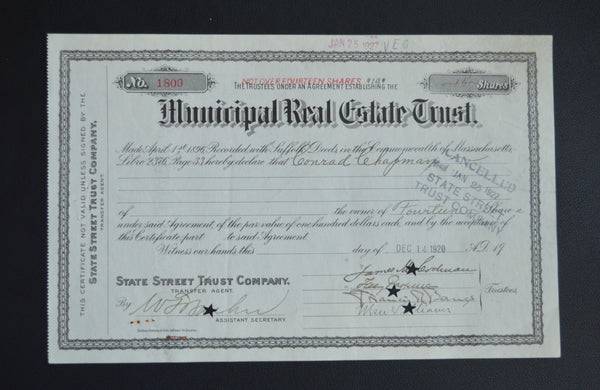 JAN 25 VEG
NOT OVER FOURTEEN SHARES $14$
No. 1809 Shares
THE TRUSTEES UNDER AN AGREEMENT ESTABLISHING THE
Municipal Real Estate Trust.
Made April 1st 1896, Recorded with Suffolk Deeds, in the Commonwealth of Massachusetts
Libro Page 33 hereby declare that Conrad Chapman
of the owner of Fourteen Shares
under said Agreement, of the par value of one hundred dollars each, and by the acceptance of
this Certificate part to said Agreement
Witness our hands this day of DEC 14 1920 A.D. 19
CANCELLED
JAN 25
STATE STREET
TRUST
STATE STREET TRUST COMPANY.
TRANSFER AGENT.
By
ASSISTANT SECRETARY.
James
Trustees
THIS CERTIFICATE NOT VALID UNLESS SIGNED BY THE
STATE STREET TRUST COMPANY,
TRANSFER AGENT.